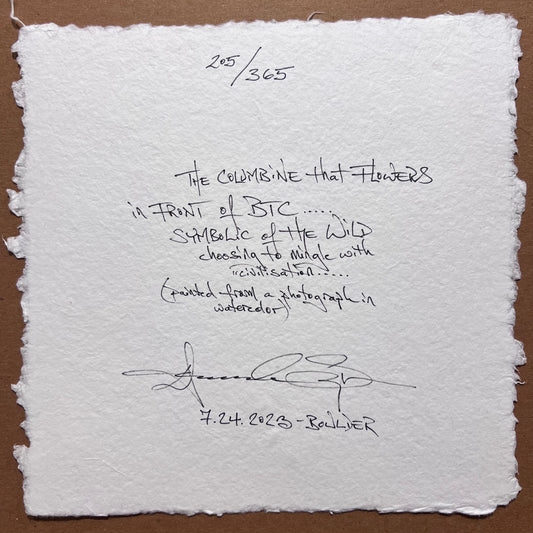 205/365
THE COLUMBINE that FLOWERS
in FRONT of BTC......
SYMBOLIC of THE WILD
choosing to mingle with
"civilisation.....
(painted from a photograph in
watercolor)
7.24.2023 - BOULDER